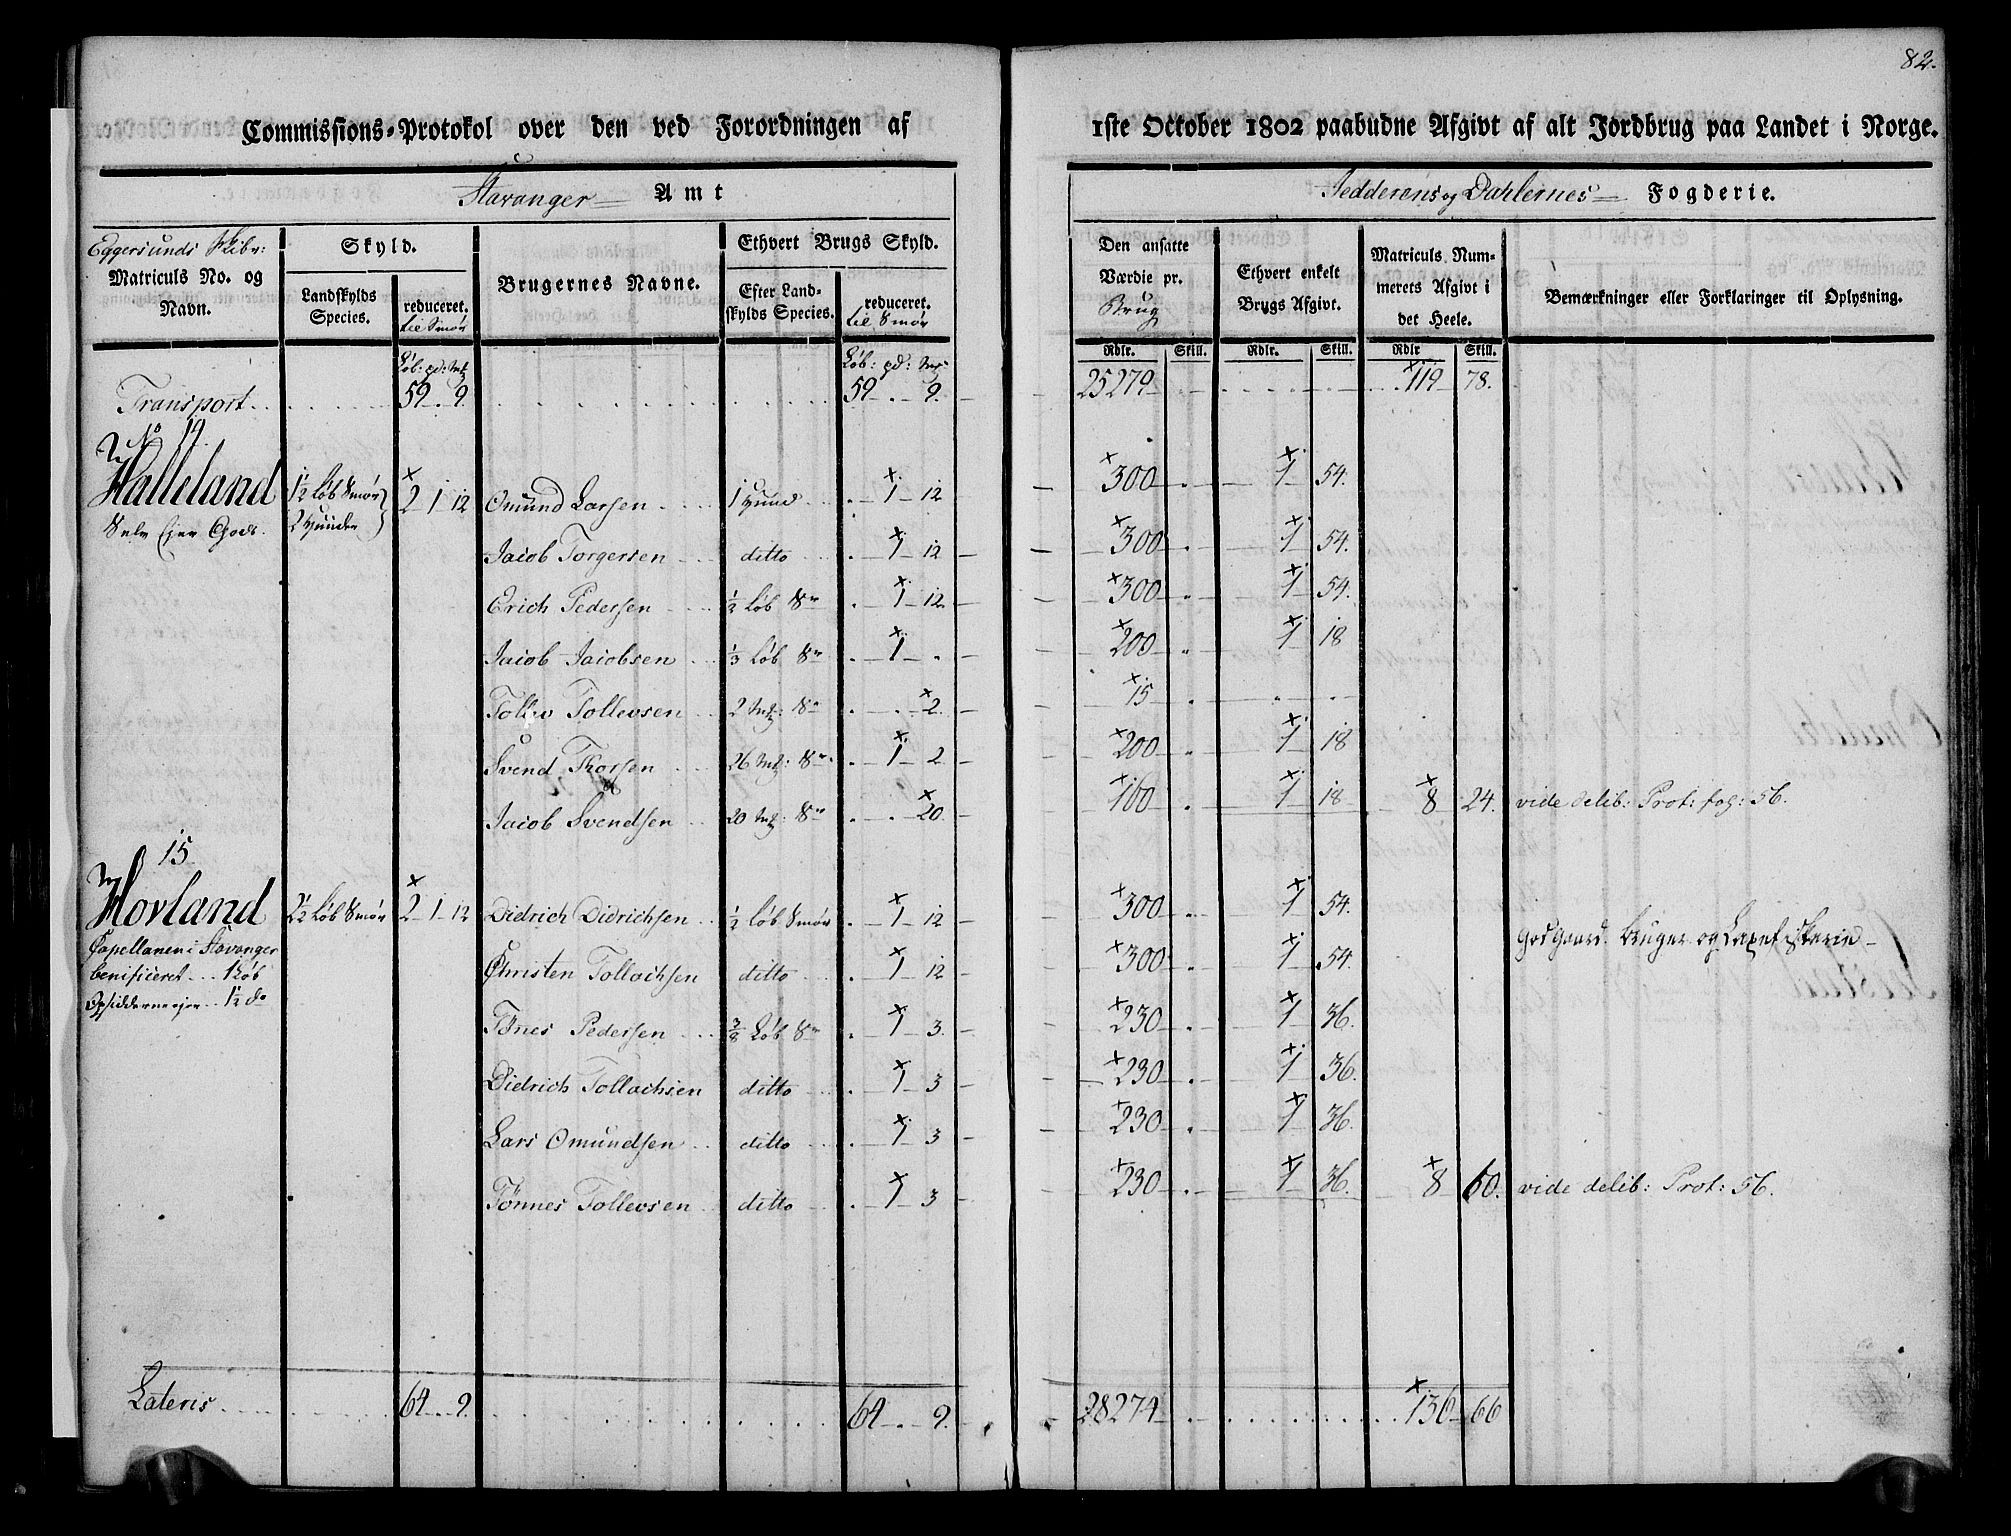 82.
Commissions-Protokol over den ved Forordningen af 1ste October 1802 paabudne Afgivt af alt Jordbrug paa Landet i Norge.
Stavanger Amt
Jedderens og Dahlernes Fogderie.
Eggersunds Skibr:
Matriculs No. og Navn.
Skyld.
Landskylds Species.
reduceret. til Smør
Brugernes Navne.
Ethvert Brugs Skyld.
Efter Landskylds Species.
reduceret. til Smør
Den ansatte Værdie pr. Brug
Ethvert enkelt Brugs Afgivt.
Matriculs Nummerets Afgivt i det Heele.
Bemærkninger eller Forklaringer til Oplysning.
Løb: pd: mk Løb: pd: mk Rdlr. Skill. Rdlr. Skill. Rdlr Skill.
Transport 59 . 9. 59 . 9. 25279 119 78.
No 14.
Halleland 1½ Løb Smør 2 1 12 Omund Larsen 1 Hund . 1 12 300 . 1 54.
Selv Ejer Gods. 2 Hunder
Jacob Torgersen ditto . 1 12 300 . 1 54.
Erich Pedersen ½ Løb Sm . 1 12 300 . 1 54.
Jacob Jacobsen ⅓ Løb Sm . 1 . 200 . 1 18
Tollev Tollevsen 2 mk: Sm . . 2. 15 . . .
Svend Thorsen 26 mk: Sm . 1 2 200 . 1 18
Jacob Svendsen 20 mk: Sm . . 20. 160 . 1 18 8 24. vide delib: Prot: fog: 56.
15.
Hovland 2½ Løb Smør 2 1 12 Didrich Didrichsen ½ Løb Smør . 1 12 300 . 1 54.
God Gaard. Bruger og Laxefiskerie
Capellanen i Stavanger
benificeret 1 Løb Christen Tollachsen ditto . 1 12 300 . 1 54.
Opsidderne ejer 1½ do
Tönes Pedersen ⅜ Løb Sm . 1 3. 230 . 1 36.
Didrich Tollachsen ditto . 1 3 230 . 1 36.
Lars Omundsen ditto . 1 3 230 . 1 36.
Tönnes Tollevsen ditto . 1 3 230 . 1 36. 8 60. vide delib: Prot: 56.
Lateris 64 . 9. 64 . 9. 28274 136 66